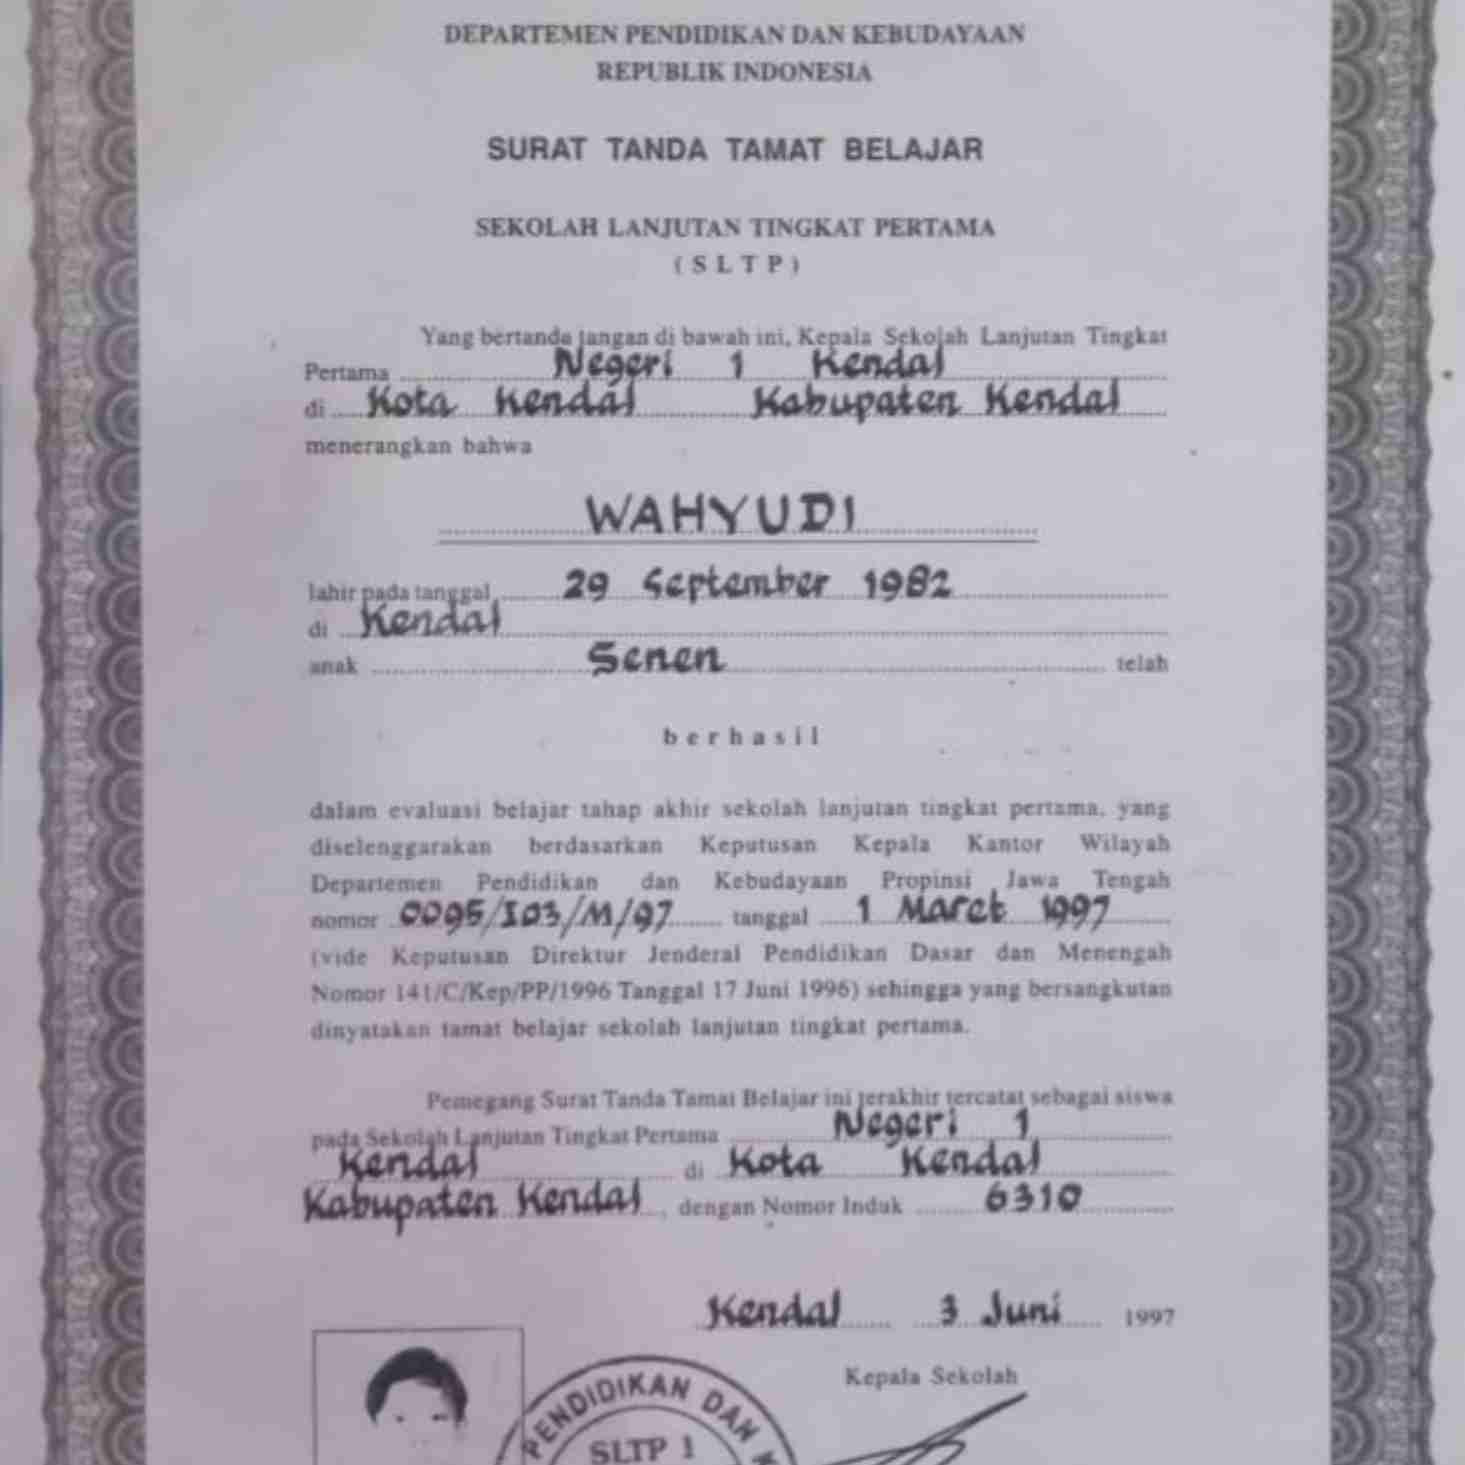 DEPARTEMEN PENDIDIKAN DAN KEBUDAYAAN
REPUBLIK INDONESIA
SURAT TANDA TAMAT BELAJAR
SEKOLAH LANJUTAN TINGKAT PERTAMA
( S L T P )
Yang bertanda tangan di bawah ini, Kepala Sekolah Lanjutan Tingkat
Pertama Negeri 1 Kendal
di Kota Kendal Kabupaten Kendal
menerangkan bahwa
WAHYUDI
lahir pada tanggal 29 September 1982
di Kendal
anak Senen telah
berhasil
dalam evaluasi belajar tahap akhir sekolah lanjutan tingkat pertama, yang
diselenggarakan berdasarkan Keputusan Kepala Kantor Wilayah
Departemen Pendidikan dan Kebudayaan Propinsi Jawa Tengah
nomor 0095/I03/M/97 tanggal 1 Maret 1997
(vide Keputusan Direktur Jenderal Pendidikan Dasar dan Menengah
Nomor 141/C/Kep/PP/1996 Tanggal 17 Juni 1996) sehingga yang bersangkutan
dinyatakan tamat belajar sekolah lanjutan tingkat pertama.
Pemegang Surat Tanda Tamat Belajar ini terakhir tercatat sebagai siswa
pada Sekolah Lanjutan Tingkat Pertama Negeri 1
Kendal di Kota Kendal
Kabupaten Kendal, dengan Nomor Induk 6310
Kendal 3 Juni 1997
Kepala Sekolah
PENDIDIKAN DAN K
SLTP 1